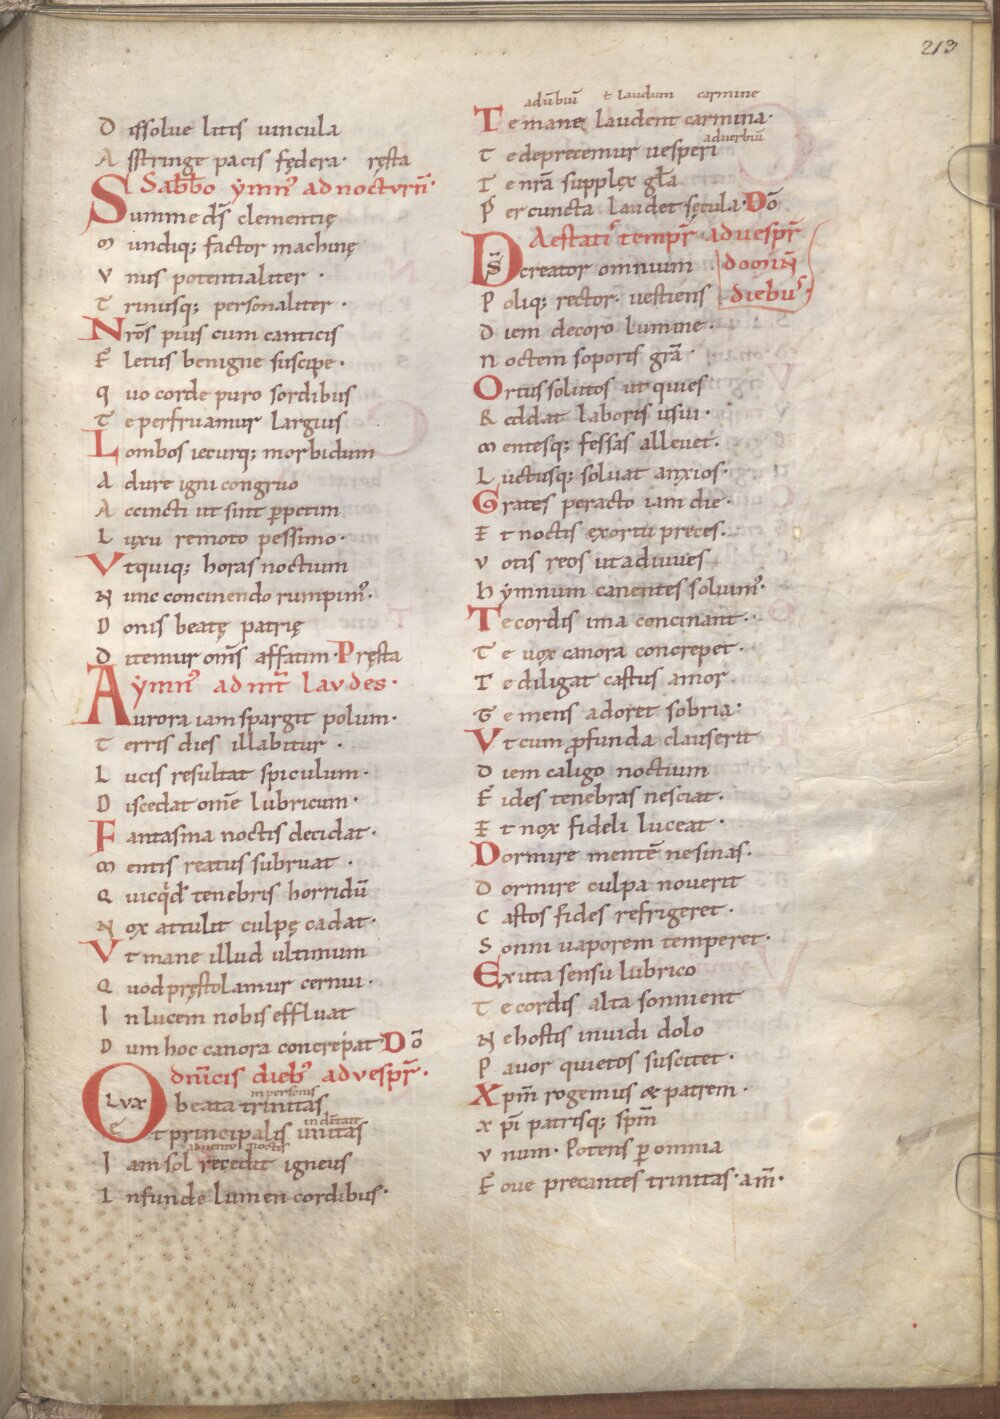 213
Dissolue litis uincula
Asstringe pacis fędera· ręsta
Sabb̄o ẏmn᾿ ad nocturn̄·
Summe ds̄ clementię
mundiq; factor machinę
Vnus potentialiter ·
Trinusq; personaliter ·
Nrōs pius cum canticis
Fletus benigne suscipe·
quo corde puro sordibus
Te perfruamur largius
Lombos iecurq; morbidum
Adure igni congruo
Accincti ut sint ꝑpetim
Luxu remoto pessimo·
Vt quiq; horas noctium
Nunc concinendo rumpim᾿·
Donis beatę patrię
Ditemur om̄s affatim· Pręsta
ẏmn᾿ ad mt̄ laudes·
Aurora iam spargit polum·
Terris dies illabitur ·
Lucis resultat spiculum·
Discedat om̄e lubricum·
Fantasma noctis decidat·
mentis reatus subruat ·
Quicq̇d tenebris horridū
Nox attulit culpę cadat·
Vt mane illud ultimum
Quod pręstolamur cernui·
In lucem nobis effluat
Dum hoc canora concrepat Dō
Dn̄icis dieb᾿ ad uespr̄·
in personis
O Lux beata trinitas
in deitate
Et principalis unitas
aduentu noctis
Iam sol recedit igneus
Infunde lumen cordibus·
adūbiū ł laudum carmine
Te mane laudent carmina·
aduerbiū
Te deprecemur uesperi
Te nrā supplex gl̄a
Per cuncta laudet sęcula· Dō
Aestati᾿ tempr̄ ad uespr̄
D̄s creator omnium domin̄
Poliq; rector· uestiens diebu᾿·
Diem decoro lumine·
noctem soporis grā·
Ortus solutos ut quies
Reddat laboris usui·
mentesq; fessas alleuet·
Luctusq; soluat anxios·
Grates peracto iam die·
Et noctis exortu preces·
votis reos ut adiuues
hẏmnum canentes soluim᾿·
Te cordis ima concinant·
Te uox canora concrepet·
Te diligat castus amor
Te mens adoret sobria·
Vt cum ꝓfunda clauserit
diem caligo noctium
Fides tenebras nesciat·
Et nox fideli luceat·
Dormire mentē ne sinas·
Dormire culpa nouerit
Castos fides refrigeret·
Somni uaporem temperet·
Exuta sensu lubrico
Te cordis alta somnient
Ne hostis inuidi dolo
Pauor quietos suscitet·
Xpm̄ rogemus & patrem·
xpī patrisq; spm̄
vnum· Potens ꝑ omnia
Foue precantes trinitas· am̄·